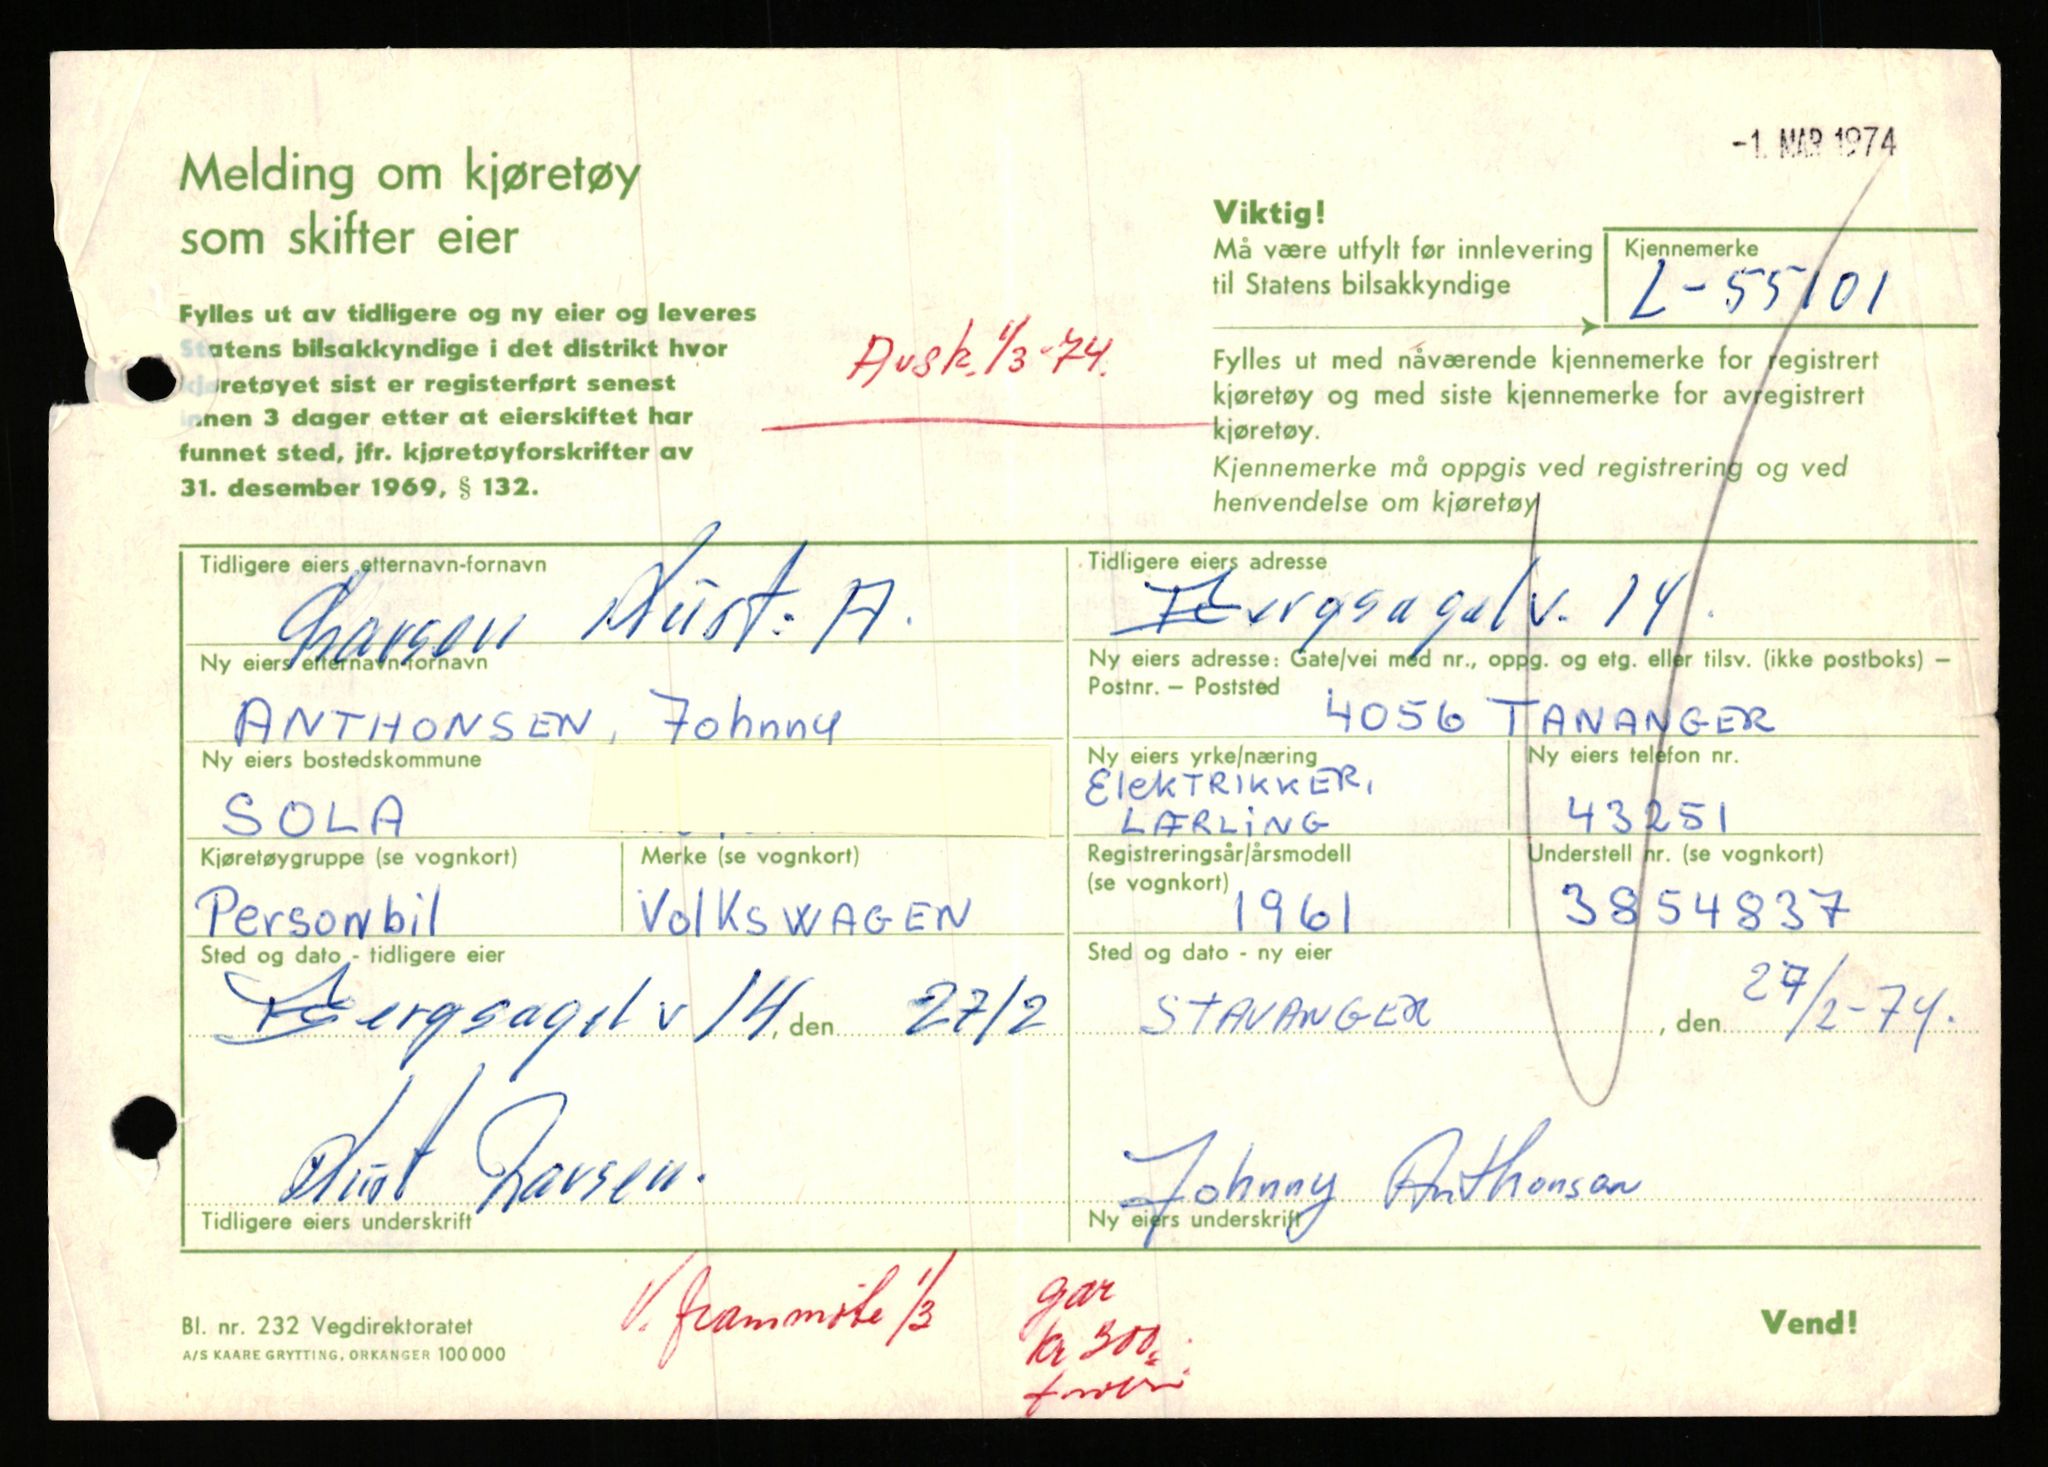 -1. MAR 1974
Melding om kjøretøy
som skifter eier
Fylles ut av tidligere og ny eier og leveres
Statens bilsakkyndige i det distrikt hvor
kjøretøyet sist er registerført senest
innen 3 dager etter at eierskiftet har
funnet sted, jfr. kjøretøyforskrifter av
31. desember 1969, § 132.
Avsk. 1/3-74.
Viktig!
Må være utfylt før innlevering
til Statens bilsakkyndige
Kjennemerke
L-55101
Fylles ut med nåværende kjennemerke for registrert
kjøretøy og med siste kjennemerke for avregistrert
kjøretøy.
Kjennemerke må oppgis ved registrering og ved
henvendelse om kjøretøy
Tidligere eiers etternavn-fornavn
Larsen Aust. A.
Tidligere eiers adresse
Bergsagelv. 14.
Ny eiers etternavn-fornavn
ANTHONSEN, Johnny
Ny eiers adresse: Gate/vei med nr., oppg. og etg. eller tilsv. (ikke postboks) –
Postnr. – Poststed
4056 TANANGER
Ny eiers bostedskommune
SOLA
Ny eiers yrke/næring
ElekTRIKKER,
LÆRLING
Ny eiers telefon nr.
43251
Kjøretøygruppe (se vognkort)
Personbil
Merke (se vognkort)
VolKSWAGEN
Registreringsår/årsmodell
(se vognkort)
1961
Understell nr. (se vognkort)
3854837
Sted og dato - tidligere eier
Bergsagelv 14, den 27/2
Sted og dato - ny eier
STAVANGER, den 27/2-74.
Aust Larsen.
Tidligere eiers underskrift
Johnny Anthonsen
Ny eiers underskrift
V. frammøte 1/3
gar
kr 300,-
Bl. nr. 232 Vegdirektoratet
A/S KAARE GRYTTING, ORKANGER 100 000
Vend!